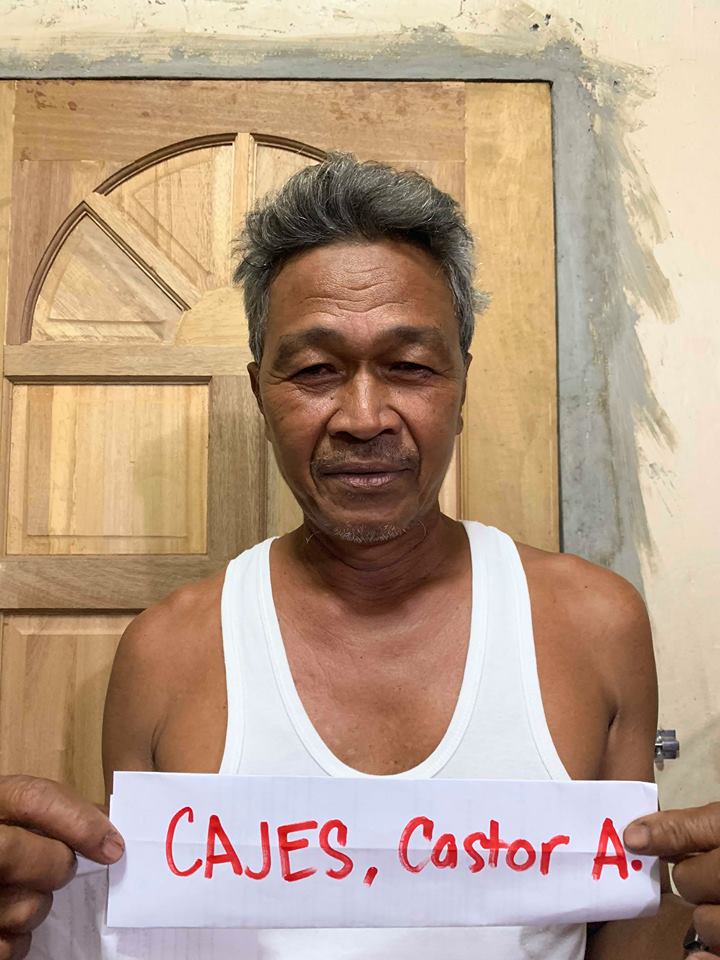 CAJES, Castor A.